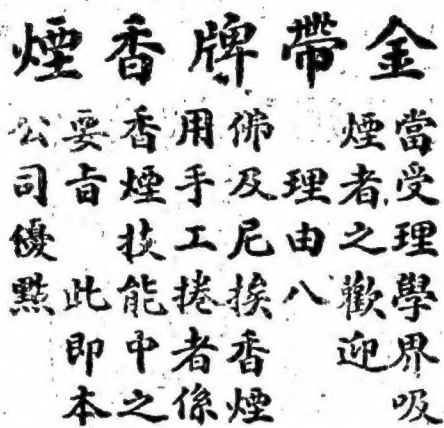 金帶牌香煙
當受理學界吸
煙者之歡迎
理由八
佛及尼挨香煙
用手工捲者係
香煙技能中之
要旨 此即本
公司優點